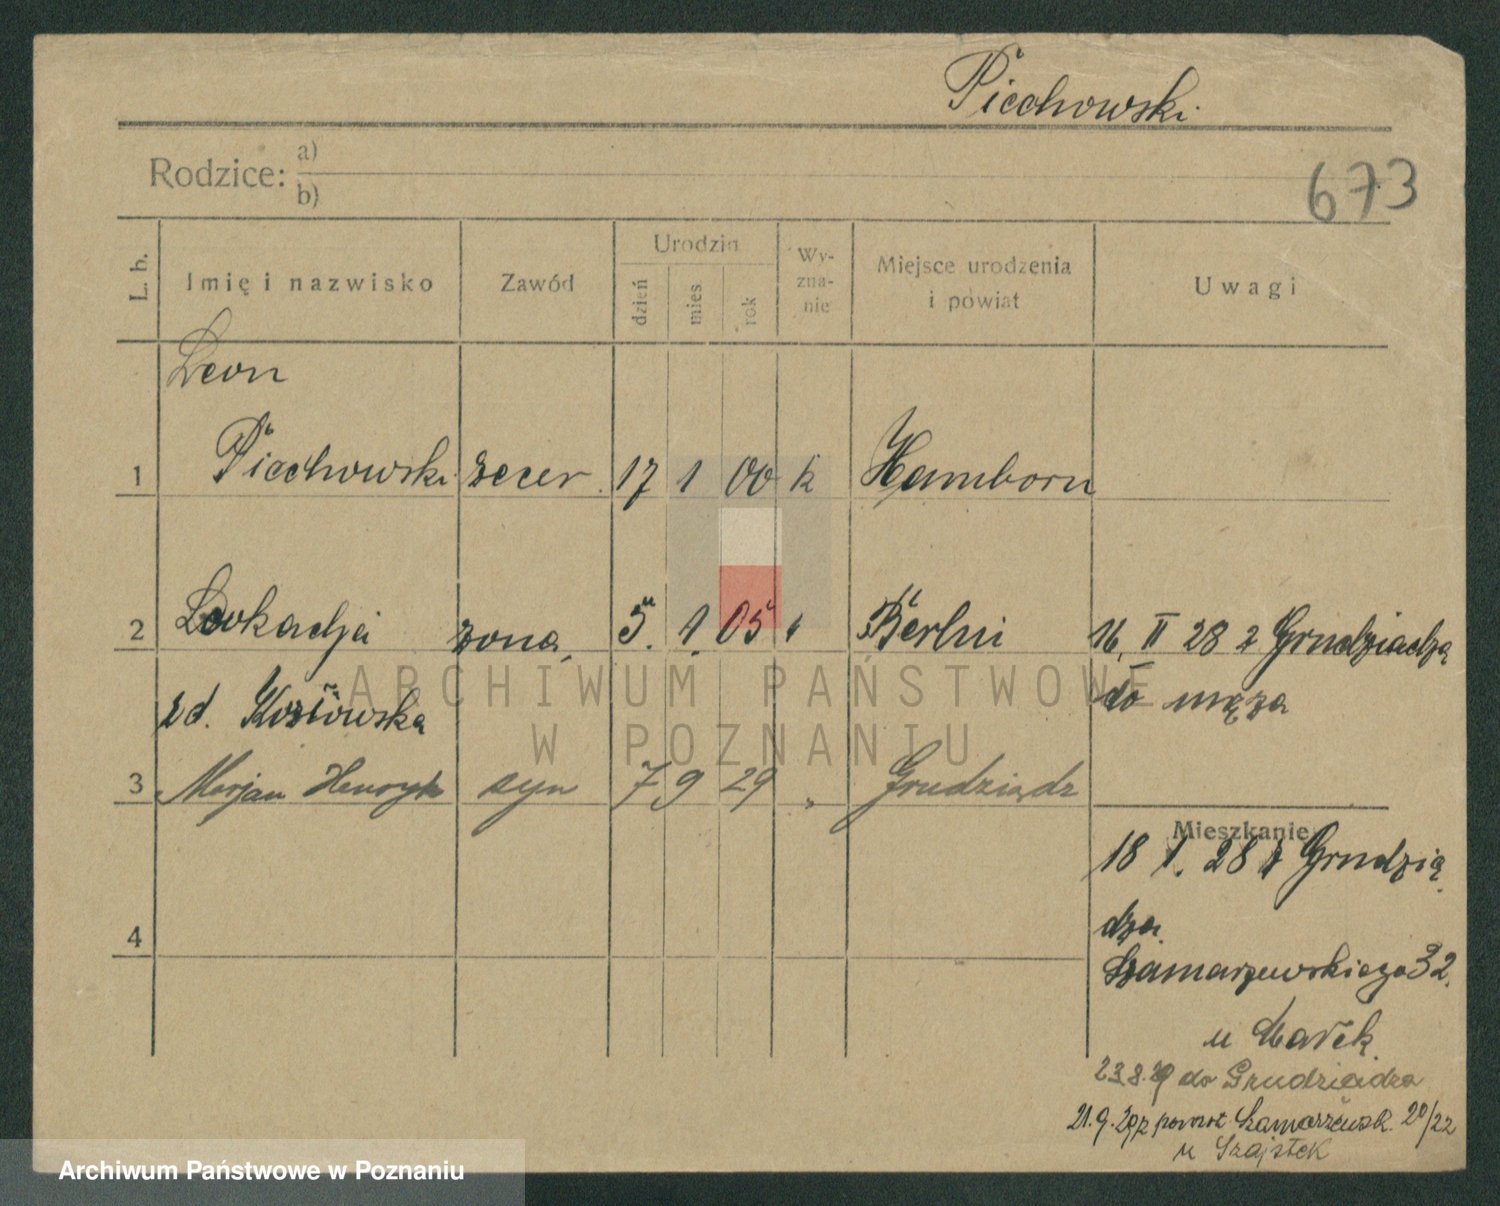 Piechowski
Rodzice: a)
b)
673
L. b.
Imię i nazwisko
Zawód
Urodzin
dzień
mies.
rok
Wy-
zna-
nie
Miejsce urodzenia
i powiat
Uwagi
Leon
1 Piechowski zecer 17 1 00 k Hamborn
2 Leokadja żona 5. 1. 05 " Berlin 16. II 28 z Grudziądza
zd. Kozłowska do męża
3 Marjan Henryk syn 7 9 29 " Grudziądz
Mieszkanie
18 1. 28 z Grudzią
dza.
4
Szamarzewskiego 32.
u
23.8.29 do Grudziądza
21.9.29 z powrot Szamarzewsk. 20/22
u Szajstek
ARCHIWUM PAŃSTWOWE
W POZNANIU
Archiwum Państwowe w Poznaniu